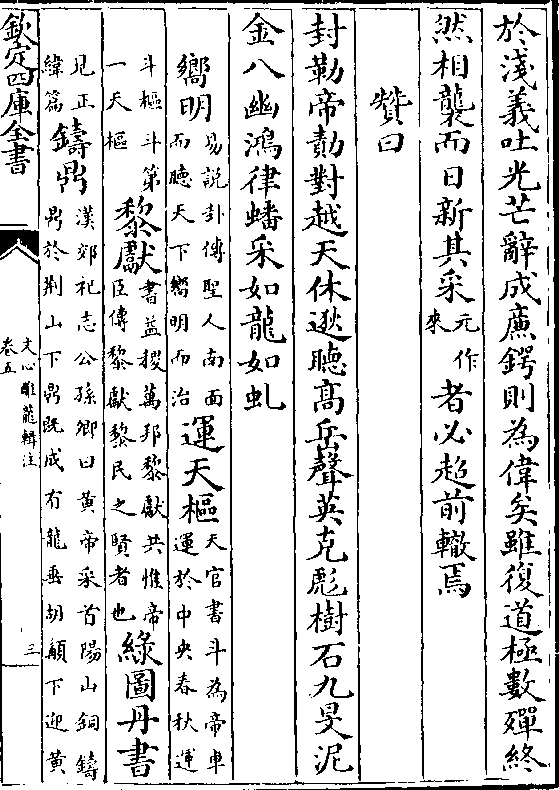 於淺義吐光芒辭成廉鍔則為偉矣雖復道極數殫終
然相襲而日新其采元作來者必超前轍焉
贊曰
封勒帝勣對越天休逖聽髙岳聲英克彪樹石九旻泥
金八幽鴻律蟠采如龍如虬
嚮明易說卦傳聖人南面而聽天下嚮明而治運天樞天官書斗為帝車運於中央春秋運
斗樞斗第一天樞黎獻書益稷萬邦黎獻共惟帝臣傳黎獻黎民之賢者也綠圖丹書
見正緯篇鑄鼎漢郊祀志公孫卿曰黃帝采首陽山銅鑄鼎於荆山下鼎既成有龍垂胡顄下迎黃
欽定四庫全書
文心雕龍輯注
卷五
三